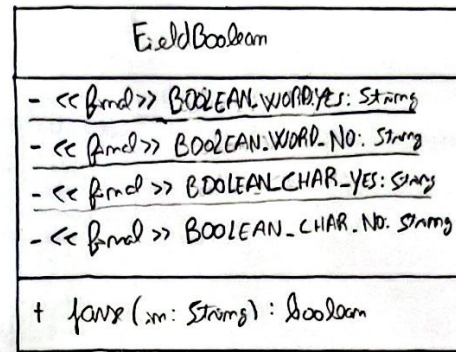 FieldBoolean
- << final >> BOOLEAN_WORD_YES: String
- << final >> BOOLEAN_WORD_NO: String
- << final >> BOOLEAN_CHAR_YES: String
- << final >> BOOLEAN_CHAR_NO: String
+ parse (in: String) : boolean